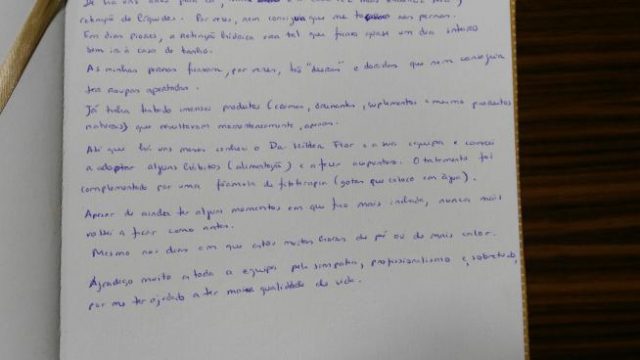 De há uns anos para cá,
retenção de líquidos. Por vezes, nem conseguia que me tocassem nas pernas.
Em dias piores, a retenção hídrica era tal que ficava quase um dia inteiro
sem ir à casa de banho.
As minhas pernas ficavam, por vezes, tão "duras" e doridas que nem conseguia
ter roupas apertadas.
Já tinha tentado imensos produtos (cremes, drenantes, suplementos e mesmo produtos
naturais) que resultavam momentaneamente, apenas.
Até que há uns meses conheci o Da e a sua equipa e comecei
a adoptar alguns hábitos (alimentação) e a fazer acupuntura. O tratamento foi
complementado por uma fórmula de fitoterapia (gotas que coloco em água).
Apesar de ainda ter alguns momentos em que fico mais inchada, nunca mais
voltei a ficar como antes.
Mesmo nos dias em que estou muitas horas de pé ou de mais calor.
Agradeço muito a toda a equipa pela simpatia, profissionalismo e, sobretudo,
por me ter ajudado a ter mais qualidade de vida.